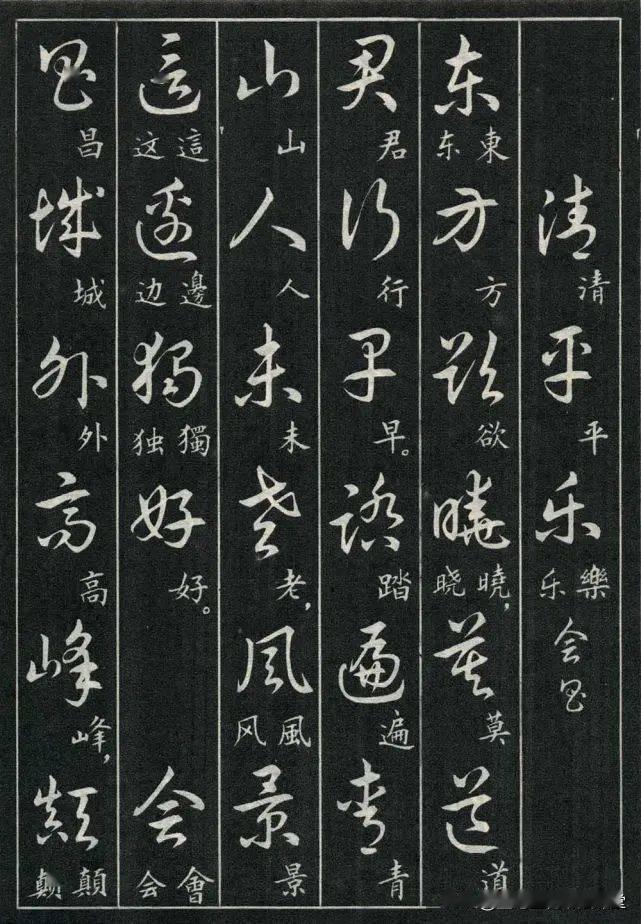 清平乐会昌
清平樂乐
东方欲曉莫道
東东方欲曉,晓莫道
君行早踏遍青
君行早。踏遍青
山人未老風景
山人未老,風风景
這邊獨好会
這这邊边獨独好。會会
昌城外高峰顛
昌城外高峰,顛颠